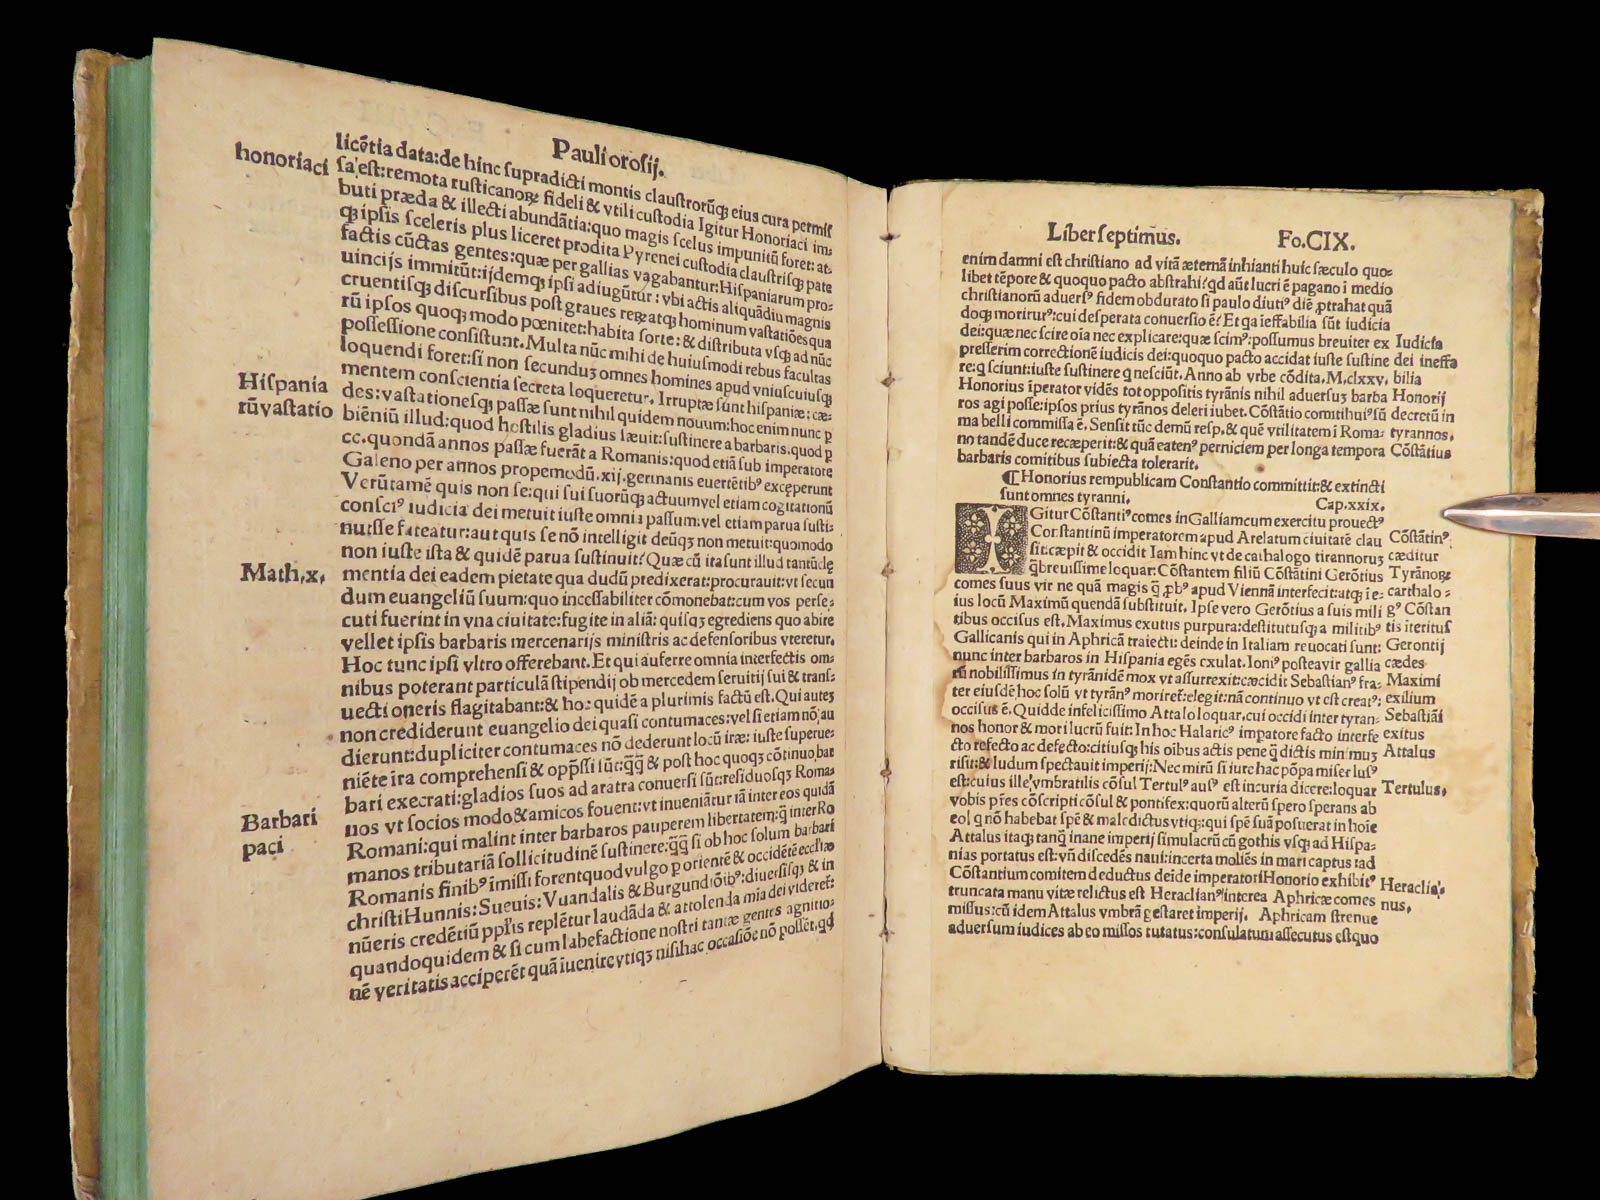 Pauli orosij.
licētia data:de hinc supradicti montis claustrorūqꝫ eius cura permis
honoriaci
sa est:remota rusticanoꝝ fideli & vtili custodia Igitur Honoriaci im-
buti præda & illecti abundātia:quo magis scelus impunitū foret:at-
qꝫ ipsis sceleris plus liceret prodita Pyrenei custodia claustrisqꝫ pate
factis cūctas gentes:quæ per gallias vagabantur:Hispaniarum pro-
uincijs immitūt:ijdemqꝫ ipsi adiugūtur:vbi actis aliquādiu magnis
cruentisqꝫ discursibus post graues reꝝ atqꝫ hominum vastatiōes qua
rū ipsos quoqꝫ modo pœnitet:habita sorte:& distributa vsqꝫ ad nūc
possessione consistunt. Multa nūc mihi de huiusmodi rebus facultas
loquendi foret:si non secunduꝫ omnes homines apud vniuscuiusqꝫ
mentem conscientia secreta loqueretur. Irruptæ sunt hispaniæ: cæ-
Hispania
des:vastationesqꝫ passæ sunt nihil quidem nouum:hoc enim nunc p
rū vastatio
biēniū illud:quod hostilis gladius sæuit:sustinere a barbaris.quod p
cc.quondā annos passæ fuerāt a Romanis:quod etiā sub imperatore
Galeno per annos propemodū.xij.germanis euertētibꝰ exceperunt
Verūtamē quis non se:qui sui suorūqꝫ actuum vel etiam cogitationū
consciꝰ iudicia dei metuit iuste omnia passum:vel etiam parua susti-
nuisse fateatur:aut quis se nō intelligit deūqꝫ non metuit:quomodo
non iuste ista & quidē parua sustinuit? Quæ cū ita sunt illud tantū cle
Math.x.
mentia dei eadem pietate qua dudū predixerat:procurauit:vt secun
dum euangeliū suum:quo incessabiliter cōmonebat:cum vos perse-
cuti fuerint in vna ciuitate:fugite in aliā: quisqꝫ egrediens quo abire
vellet ipsis barbaris mercenarijs ministris ac defensoribus vteretur.
Hoc tunc ipsi vltro offerebant. Et qui auferre omnia interfectis om-
nibus poterant particulā stipendij ob mercedem seruitij sui & trans-
uecti oneris flagitabant:& hoc quidē a plurimis factū est. Qui auteꝫ
non crediderunt euangelio dei quasi contumaces:vel si etiam nō au
dierunt:dupliciter contumaces nō dederunt locū iræ: iuste superue-
niēte ira comprehensi & opp̄ssi sūt:q̄q̄ & post hoc quoqꝫ cōtinuo bar
bari execrati:gladios suos ad aratra conuersi sūt:residuosqꝫ Roma-
nos vt socios modo & amicos fouent:vt inueniātur iā inter eos quidā
Barbari
Romani:qui malint inter barbaros pauperem libertatem:q̄ inter Ro
paci
manos tributariā sollicitudinē sustinere:q̄q̄ si ob hoc solum barbari
Romanis finibꝰ īmissi forent quod vulgo p orientē & occidētē ecclīæ
christi Hunnis: Sueuis: Vuandalis & Burgundiōibꝰ:diuersisqꝫ & in
nūeris credētiū pplīs replētur laudāda & attolenda mīa dei videret:
quandoquidem & si cum labefactione nostri tantæ gentes agnitio-
nē veritatis acciperēt quā īuenire vtiqꝫ nisi hac occasiōe nō possēt.qd
Liber septimus.
Fo.CIX.
enim damni est christiano ad vitā æternā inhianti huic sæculo quo-
libet tēpore & quoquo pacto abstrahi?qd aūt lucri ē pagano ī medio
christianorū aduersꝰ fidem obdurato si paulo diutiꝰ diē ꝓtrahat quā
doqꝫ moriturꝰ:cui desperata conuersio ē? Et qa īeffabilia sūt iudicia
dei:quæ nec scire oīa nec explicare:quæ scimꝰ:possumus breuiter ex
Iudicia
presserim correctionē iudicis dei:quoquo pacto accidat iuste sustine
dei ineffa
re:q sciunt:iuste sustinere q nesciūt. Anno ab vrbe cōdita.M.clxxv.
bilia
Honorius īperator vidēs tot oppositis tyrānis nihil aduersuꝫ barba
Honorij
ros agi posse:ipsos prius tyrānos deleri iubet. Cōstātio comiti huiꝰ sū
decretū in
ma belli commissa ē. Sensit tūc demū resp. & quē vtilitatem ī Roma-
tyrannos.
no tandē duce recæperit:& quā eatenꝰ perniciem per longa tempora
Cōstātius
barbaris comitibus subiecta tolerarit.
¶ Honorius rempublicam Constantio committit:& extincti
sunt omnes tyranni.
Cap.xxix.
IGitur Cōstantiꝰ comes in Galliam cum exercitu prouectꝰ
Constantinū imperatorem apud Arelatum ciuitatē clau
Cōstātinꝰ
sit:cæpit & occidit Iam hinc vt de cathalogo tirannoruꝫ
cæditur
q̄breuissime loquar: Cōstantem filiū Cōstātini Gerōtius
Tyrānoꝝ
comes suus vir ne quā magis q̄ ꝓbꝰ apud Viennā interfecit:atqꝫ ī e-
carthalo-
ius locū Maximū quendā substituit. Ipse vero Gerōtius a suis mili
gꝰ Cōstan
tibus occisus est. Maximus exutus purpura:destitutusqꝫ a militibꝰ
tis īteritus
Gallicanis qui in Aphricā traiecti: deinde in Italiam reuocati sunt:
Gerontij
nunc inter barbaros in Hispania egēs exulat. Ioniꝰ postea vir gallia
cædes
rū nobilissimus in tyrānidē mox vt assurrexit:cæcidit Sebastianꝰ fra-
Maximi
ter eiusdē hoc solū vt tyrānꝰ moriret:elegit:nā continuo vt est creatꝰ:
exilium
occisus ē. Quid de infelicissimo Attalo loquar.cui occidi inter tyran-
Sebastiāi
nos honor & mori lucrū fuit: In hoc Halaricꝰ impatore facto interfe
exitus
cto refecto ac defecto:citiusqꝫ his oibus actis pene q̄ dictis mimuꝫ
Attalus
risit:& ludum spectauit imperij: Nec mirū si iure hac pōpa miser lusꝰ
est:cuius ille vmbratilis cōsul Tertulꝰ ausꝰ est in curia dicere:loquar
Tertulus.
vobis p̄res cōscripti cōsul & pontifex:quorū alterū spero sperans ab
eo! q nō habebat spē & maledictus vtiqꝫ:qui spē suā posuerat in hoīe
Attalus itaqꝫ tanq̄ inane imperij simulacrū cū gothis vsqꝫ ad Hispa-
nias portatus est:vn̄ discedēs naui:incerta moliēs in mari captus t ad
Cōstantium comitem deductus deīde imperatori Honorio exhibitꝰ
truncata manu vitæ relictus est Heraclianꝰ interea Aphricæ comes
Heraclia-
missus:cū idem Attalus vmbrā gestaret imperij. Aphricam strenue
nus.
aduersum iudices ab eo missos tutatus:consulatum assecutus est quo